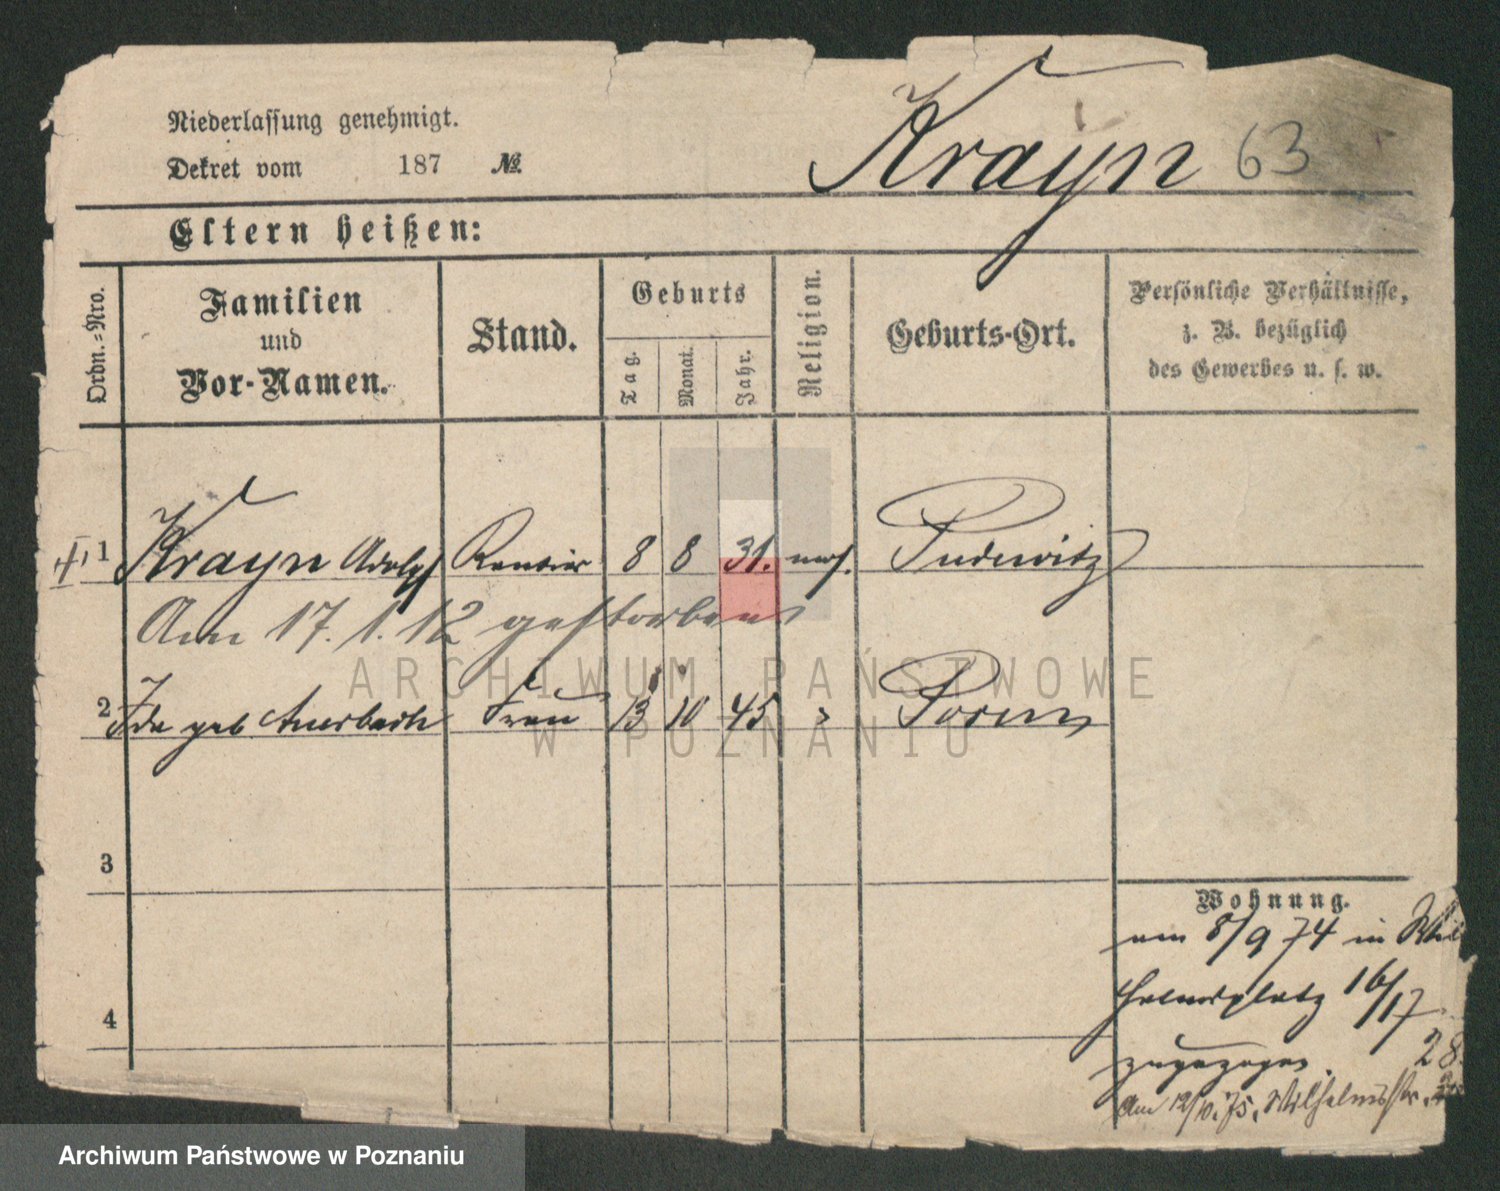 Niederlassung genehmigt.
Dekret vom 187 №
Krayn 63
Eltern heißen:
Ordn.-Nro.
Familien und Vor-Namen.
Stand.
Geburts
Tag.
Monat.
Jahr.
Religion.
Geburts-Ort.
Persönliche Verhältnisse,
z. B. bezüglich
des Gewerbes u. s. w.
1 Krayn Adolph Rentier 8 8 31. mos. Pudewitz
Am 17.1.12 gestorben
2 Ida geb Auerbach Frau 13 10 45 Posen
3
4
Wohnung.
am 8/9 74 in Wil
helmsplatz 16/17
zugezogen.
28
Am 12/10.75. Wilhelmsstr.
ARCHIWUM PAŃSTWOWE
W POZNANIU
Archiwum Państwowe w Poznaniu